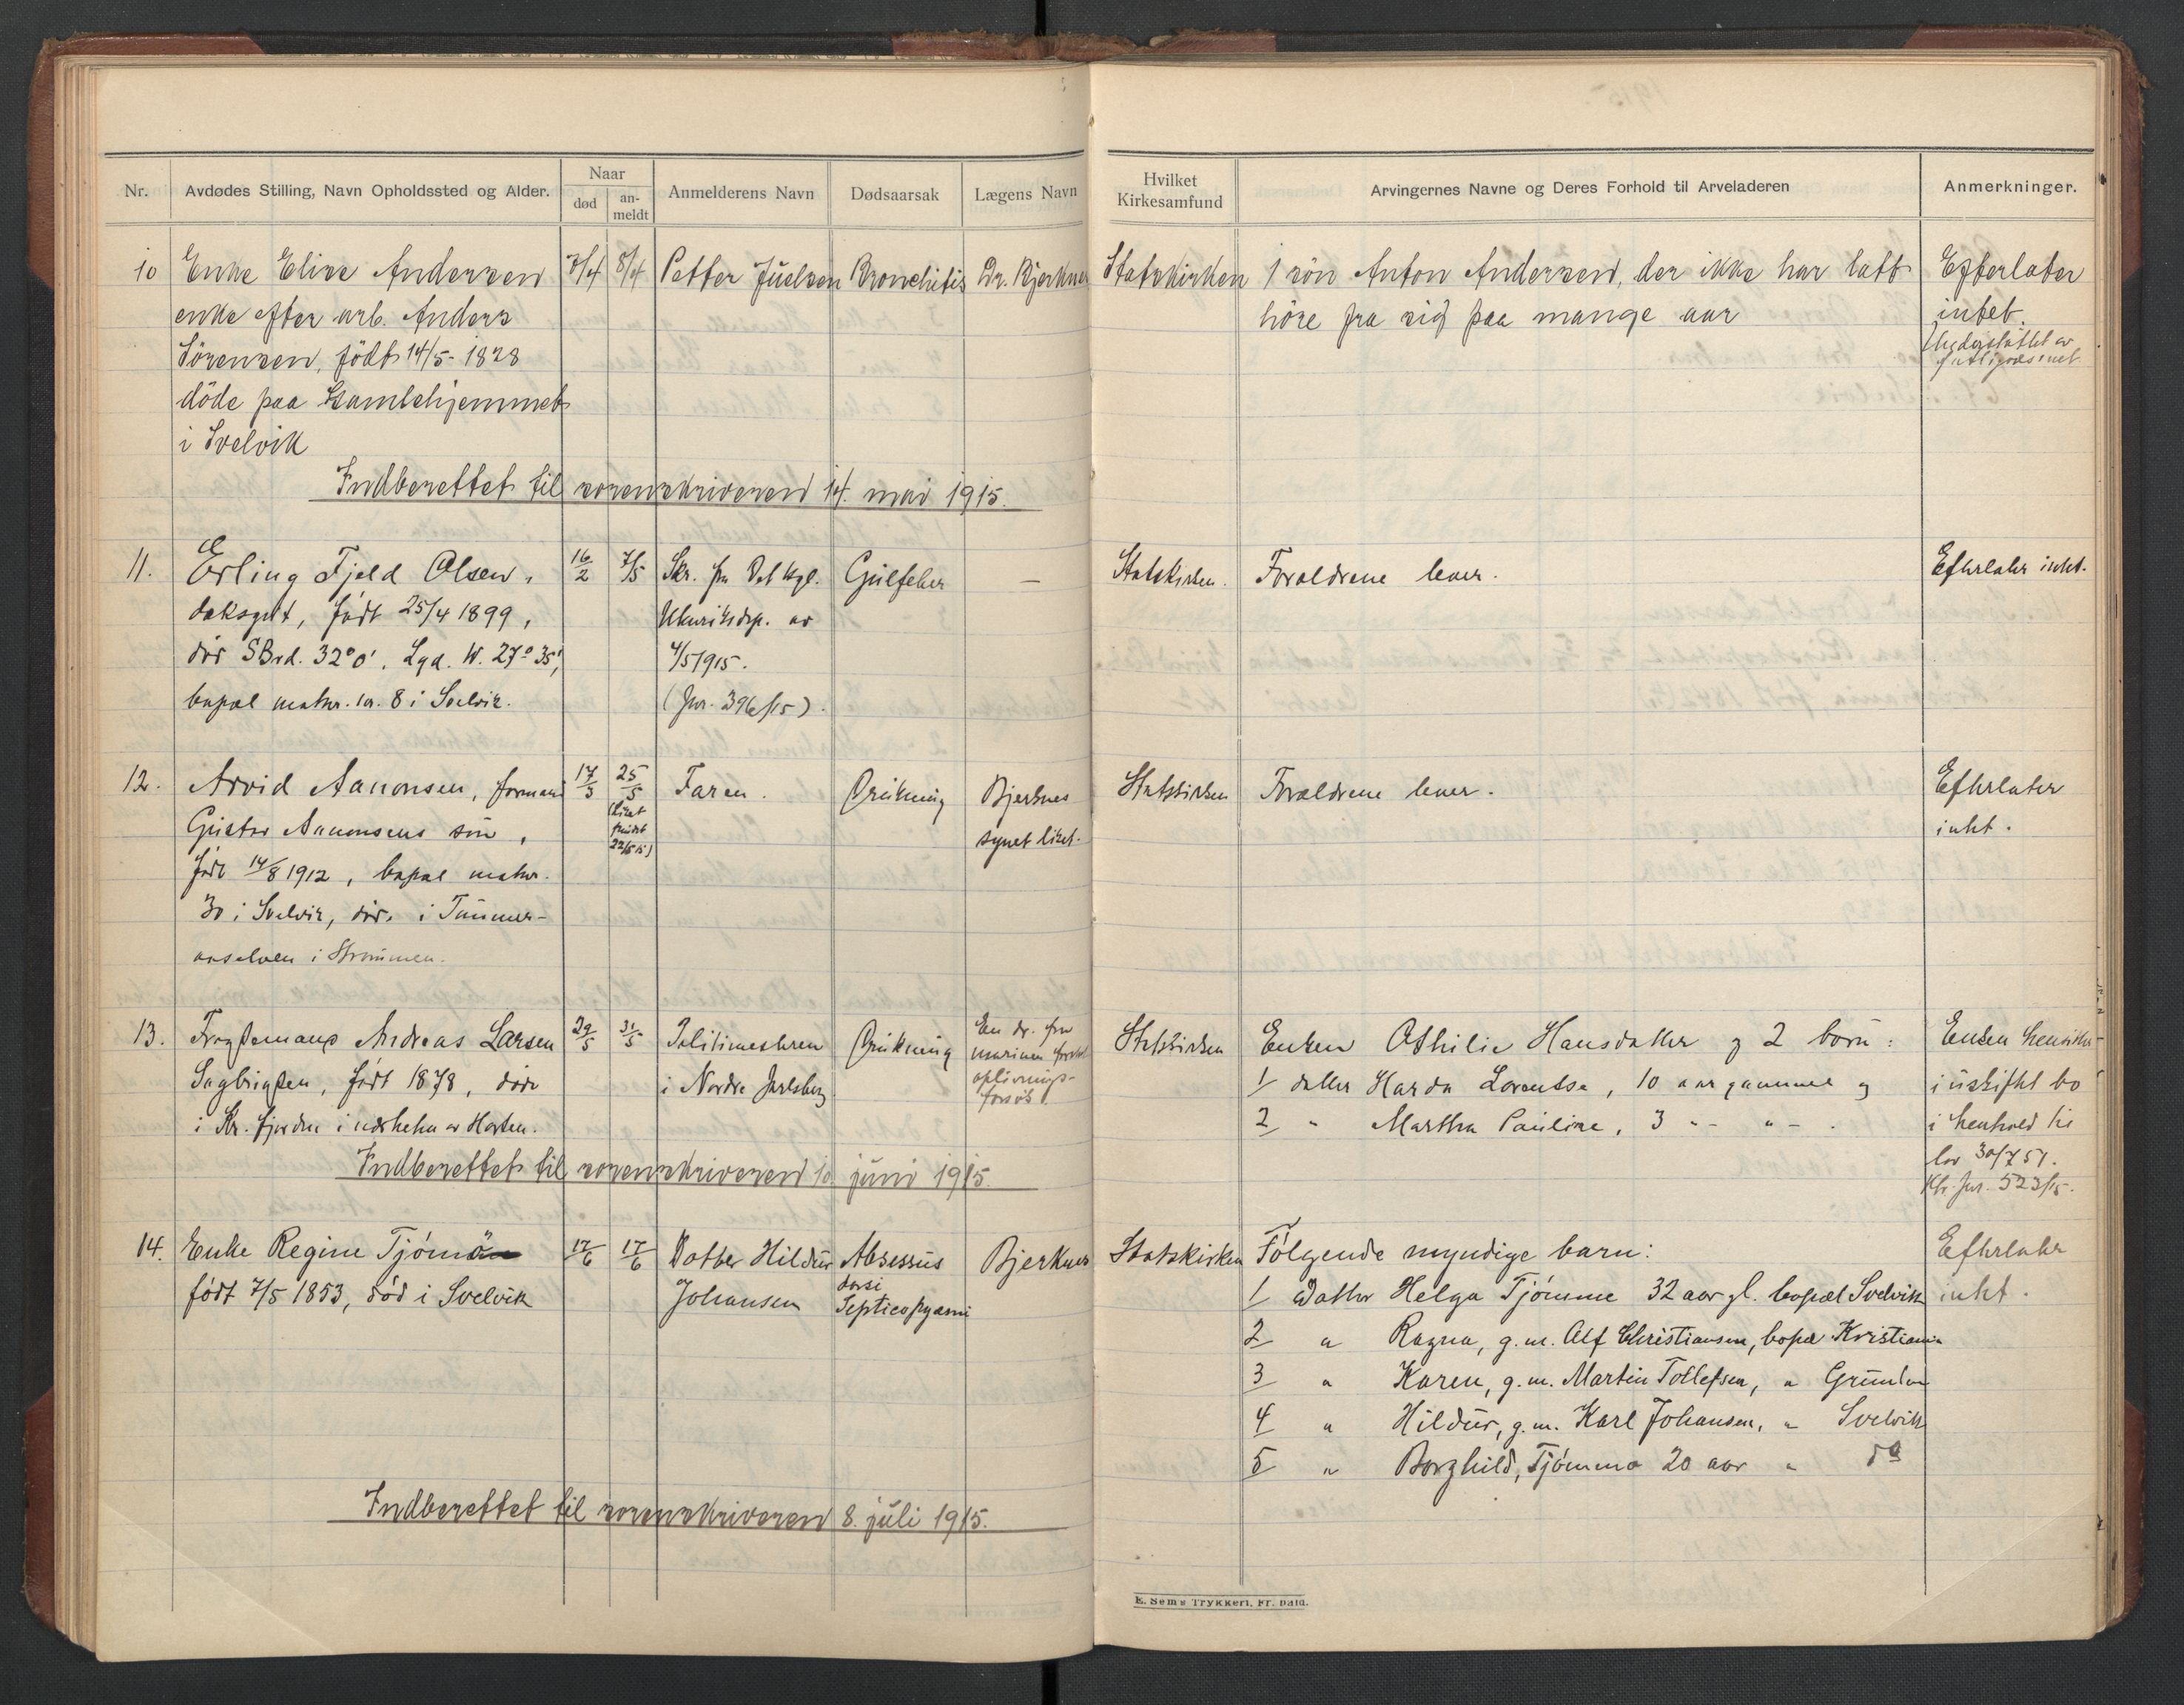 Nr.
Avdødes Stilling, Navn Opholdssted og Alder.
Naar
død
an-
meldt
Anmelderens Navn
Dødsaarsak
Lægens Navn
Hvilket
Kirkesamfund
Arvingernes Navne og Deres Forhold til Arveladeren
Anmerkninger.
10 Enke Elise Andersen 7/4 8/4 Petter Juelsen Bronchitis Dr. Bjerknes Statskirken 1 sön Anton Andersen, der ikke har latt Efterlater
enke efter arb. Anders höre fra sig paa mange aar intet.
Sörensen, födt 14/5-1828 Understöttet av
döde paa Gamlehjemmet
i Svelvik
Indberettet til sorenskriveren 14. mai 1915.
11. Erling Fjeld Olsen, 16/2 7/5 Skr. fra Det kgl. Gulfeber — Statskirken. Forældrene lever. Efterlater intet.
daksgut, født 25/4 1899, Utenriksdep. av
død SBrd. 32° 0'. Lgd. W. 27° 35', 4/5 1915.
bopæl matr. nr. 8 i Svelvik. (Jnr. 396/15).
12. Arvid Aanonsen, formand 17/3 25/5 Faren. Drukning Bjerknes Statskirken Forældrene lever. Efterlater
Gustav Aanonsens søn, (Liket synet liket. intet.
født 14/8 1912, bopæl matr. fundet
30 i Svelvik, død i Tømmer- 22/5 15)
i Strømmen.
13. Fragtemand Andreas Larsen 29/5 31/5 Politimesteren Drukning En dr. fra Statskirken Enken Othilie Hansdatter og 2 børn: Enken hensitter
Sagbrigden, født 1878, døde i Nordre Jarlsberg marinen 1/ datter Harda Lorentse, 10 aar gammel og i uskiftet bo
i Kr. fjorden i nærheten av Horten. oplivnings- 2 " Martha Pauline, 3 " - " - . i henhold til
forsøk. lov 30/7 51.
Kfr. Jnr. 523/15.
Indberettet til sorenskriveren 10. juni 1915.
14. Enke Regine Tjömö 17/6 17/6 Datter Hildur Absessus Bjerknes Statskirken Følgende myndige barn: Efterlater
født 7/5 1853, død i Svelvik Johansen dorsi 1/ Datter Helga Tjømme 32 aar gl. bopæl Svelvik intet.
Septicopyæmi
2 " Ragna, g. m. Alf Christiansen, bopæl Kristiania
3 " Karen, g. m. Martin Tollefsen, " Grimsland
4 " Hildur, g. m. Karl Johansen, " Svelvik
5 " Borghild, Tjømme 20 aar " do
Indberettet til sorenskriveren 8. juli 1915.
E. Sem's Trykkeri, Fr. hald.